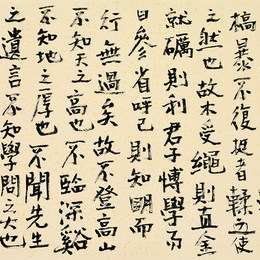 槁暴不復挺者輮之使
之然也故木受繩則直金
就礪則利君子博學而
日參省乎己則知明而
行無過矣故不登高山
不知天之高也不臨深谿
不知地之厚也不聞先生
之遺言不知學問之大也